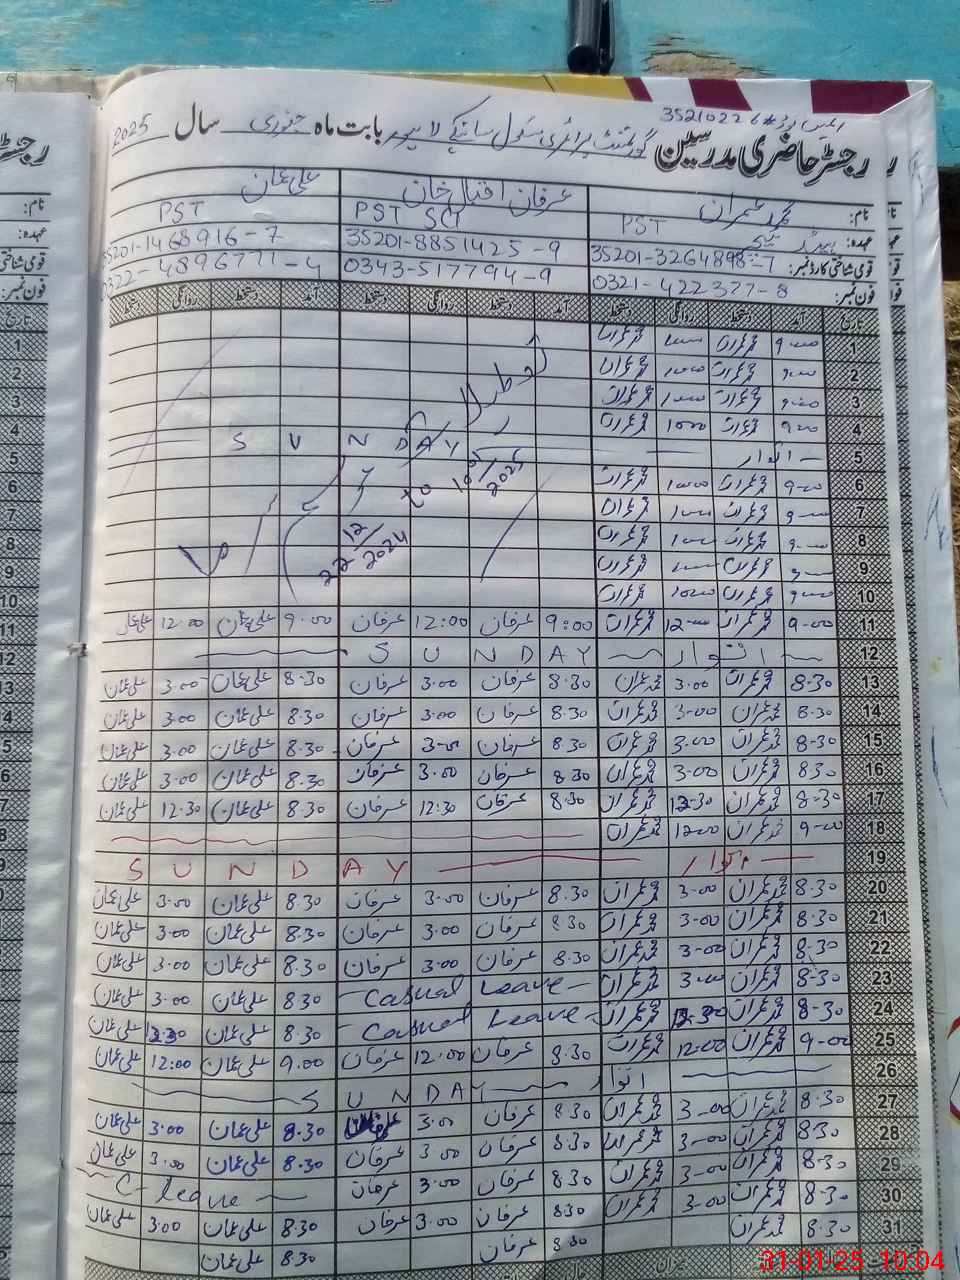 ایمس کوڈ # 35210226
رجسٹر حاضری مدرسین گورنمنٹ پرائمری سکول لاہور بابت ماہ جنوری سال 2025
نام: محمد عمران عرفان اقبال خان علی عمان
عہدہ: PST ہیڈ PST SCI PST
قومی شناختی کارڈ نمبر: 35201-3264898-7 35201-8851425-9 35201-1468916-7
فون نمبر: 0321-422377-8 0343-517794-9 0322-4896771-4
تاریخ آمد دستخط روانگی دستخط آمد دستخط روانگی دستخط آمد دستخط روانگی دستخط
1 9-00 محمد عمران 1000 محمد عمران
2 9-00 محمد عمران 1000 محمد عمران
3 9-00 محمد عمران 1000 محمد عمران
4 9-00 محمد عمران 1000 محمد عمران
5 اتوار SUNDAY
6 9-00 محمد عمران 1000 محمد عمران
7 9-00 محمد عمران 1000 محمد عمران
8 9-00 محمد عمران 1000 محمد عمران
9 9-00 محمد عمران 1000 محمد عمران
10 9-00 محمد عمران 1000 محمد عمران
22/12/2024 to 10/01/2025
11 9-00 محمد عمران 12-00 محمد عمران 9:00 عرفان 12:00 عرفان 9.00 علی عمان 12.00 علی عمان
12 اتوار SUNDAY
13 8-30 محمد عمران 3.00 محمد عمران 8.30 عرفان 3.00 عرفان 8.30 علی عمان 3.00 علی عمان
14 8-30 محمد عمران 3-00 محمد عمران 8.30 عرفان 3.00 عرفان 8.30 علی عمان 3.00 علی عمان
15 8-30 محمد عمران 3-00 محمد عمران 8.30 عرفان 3.00 عرفان 8.30 علی عمان 3.00 علی عمان
16 8-30 محمد عمران 3-00 محمد عمران 8.30 عرفان 3.00 عرفان 8.30 علی عمان 3.00 علی عمان
17 8-30 محمد عمران 12-30 محمد عمران 8.30 عرفان 12.30 عرفان 8.30 علی عمان 12.30 علی عمان
18 9-00 محمد عمران 12-00 محمد عمران
19 اتوار SUNDAY
20 8-30 محمد عمران 3-00 محمد عمران 8.30 عرفان 3.00 عرفان 8.30 علی عمان 3.00 علی عمان
21 8-30 محمد عمران 3-00 محمد عمران 8.30 عرفان 3.00 عرفان 8.30 علی عمان 3.00 علی عمان
22 8-30 محمد عمران 3-00 محمد عمران 8.30 عرفان 3.00 عرفان 8.30 علی عمان 3.00 علی عمان
23 8-30 محمد عمران 3-00 محمد عمران Casual Leave 8.30 علی عمان 3.00 علی عمان
24 8-30 محمد عمران 12-30 محمد عمران Casual Leave 8.30 علی عمان 12.30 علی عمان
25 9-00 محمد عمران 12:00 محمد عمران 8.30 عرفان 12.00 عرفان 9.00 علی عمان 12:00 علی عمان
26 اتوار SUNDAY
27 8-30 محمد عمران 3-00 محمد عمران 8.30 عرفان 3.00 عرفان 8.30 علی عمان 3.00 علی عمان
28 8-30 محمد عمران 3-00 محمد عمران 8.30 عرفان 3.00 عرفان 8.30 علی عمان 3.00 علی عمان
29 8-30 محمد عمران 3-00 محمد عمران 8.30 عرفان 3.00 عرفان C-leave
30 8-30 محمد عمران 3-00 محمد عمران 8.30 عرفان 3.00 عرفان 8.30 علی عمان 3.00 علی عمان
31 8-30 محمد عمران 8.30 عرفان 8.30 علی عمان
31-01-25 10:04